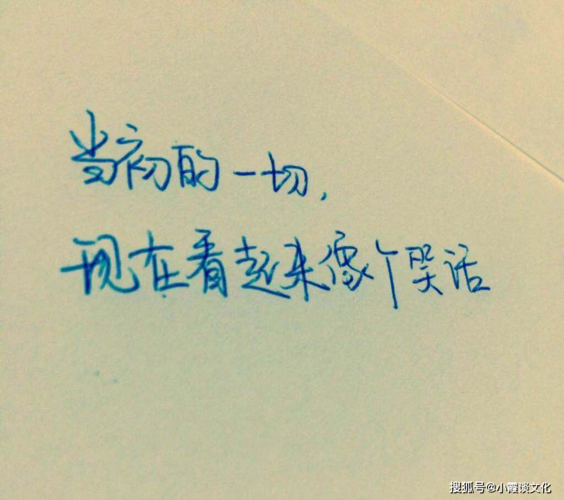 当初的一切,
现在看起来像个笑话
搜狐号@小霞谈文化